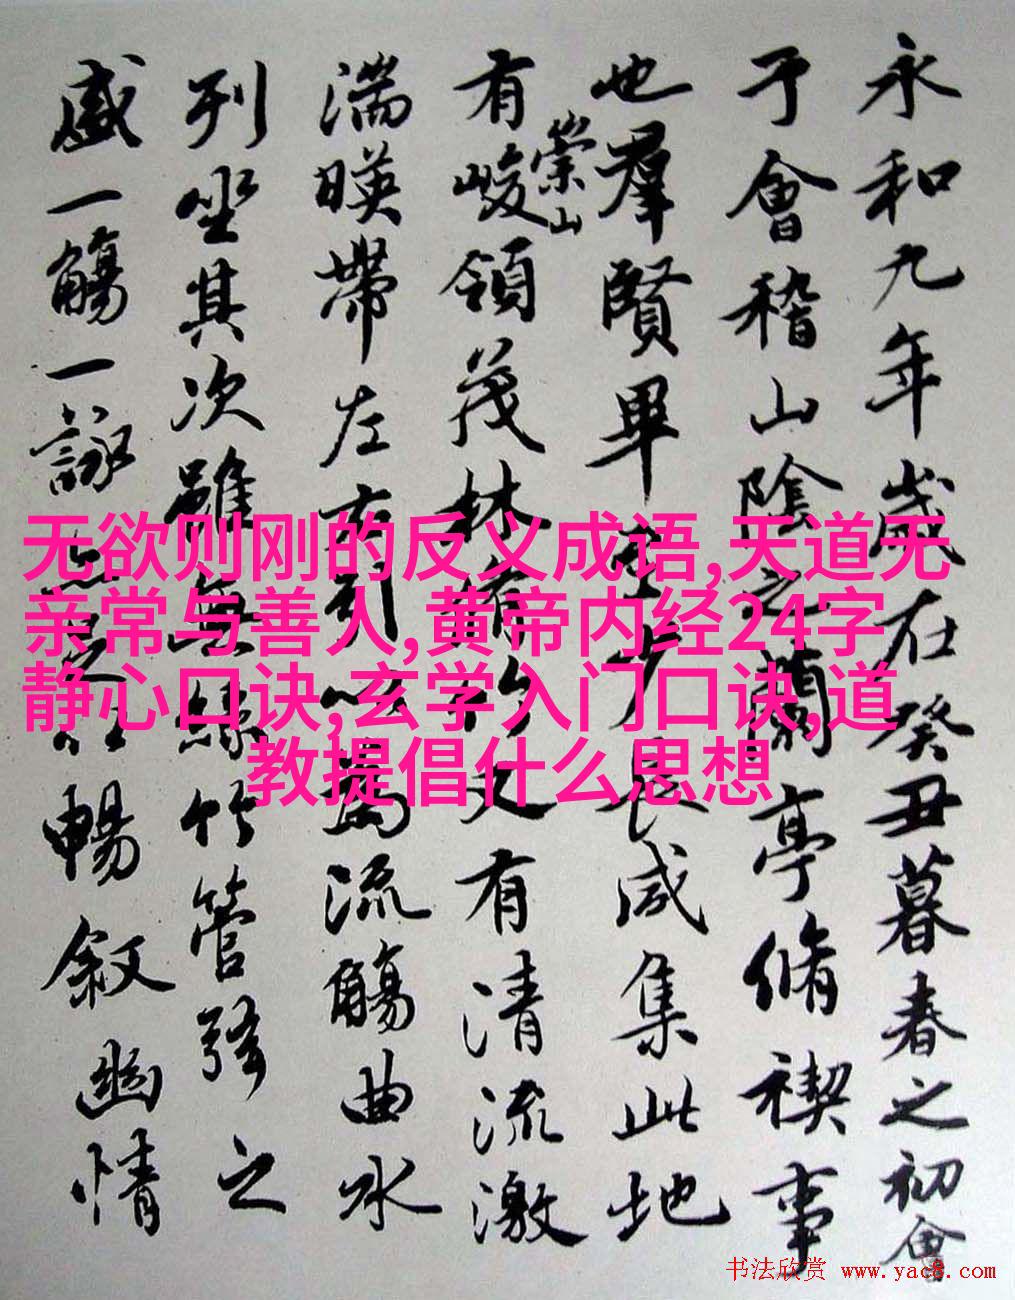 永和九年歲在癸丑暮春之初會
于會稽山陰之蘭亭脩禊事
也羣賢畢至少長咸集此地
有崇山峻領茂林脩竹又有清流激
湍暎帶左右引以為流觴曲水
列坐其次雖無絲竹管弦之
盛一觴一詠亦足以暢叙幽情
无欲则刚的反义成语,天道无
亲常与善人,黄帝内经24字
静心口诀,玄学入门口诀,道
教提倡什么思想
书法欣赏 www.yac8.com